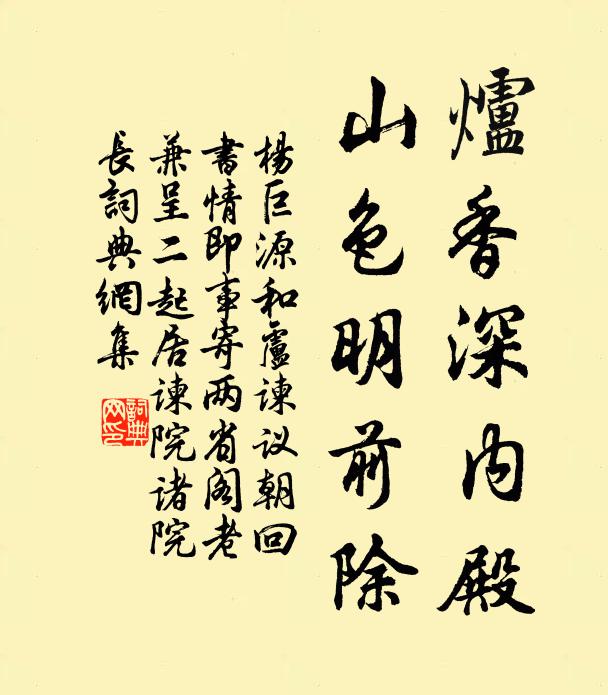 爐香深內殿
山色明前除
楊巨源和盧諫议朝回
書情即事寄两省阁老
兼呈二起居諫院诸院
長詞典網集
詞典
网印